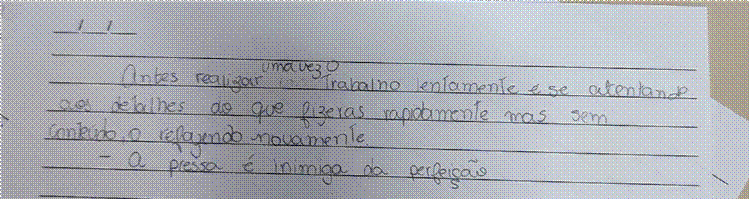 / /
uma vez o
Antes realizar Trabalho lentamente e se atentando
aos detalhes do que fizeras rapidamente mas sem
conteúdo, o refazendo novamente.
- A pressa é inimiga da perfeição
s